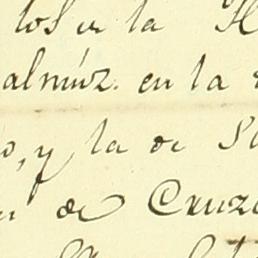 los en la H
almúz. en la
o, y la de S
de Cruz